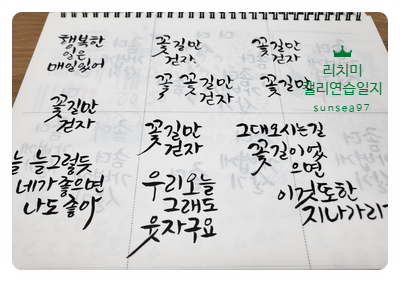 행복한
일은
매일있어
꽃길만
걷자
꽃길만
걷자
꽃 꽃길만
걷자
꽃길만
꽃길만
걷자
꽃길만
걷자
그대오시는길
꽃길이었
으면
늘 늘그렇듯
네가좋으면
나도좋아
우리오늘
그래도
웃자구요
이것또한
지나가리
리치미
캘리연습일지
sunsea97